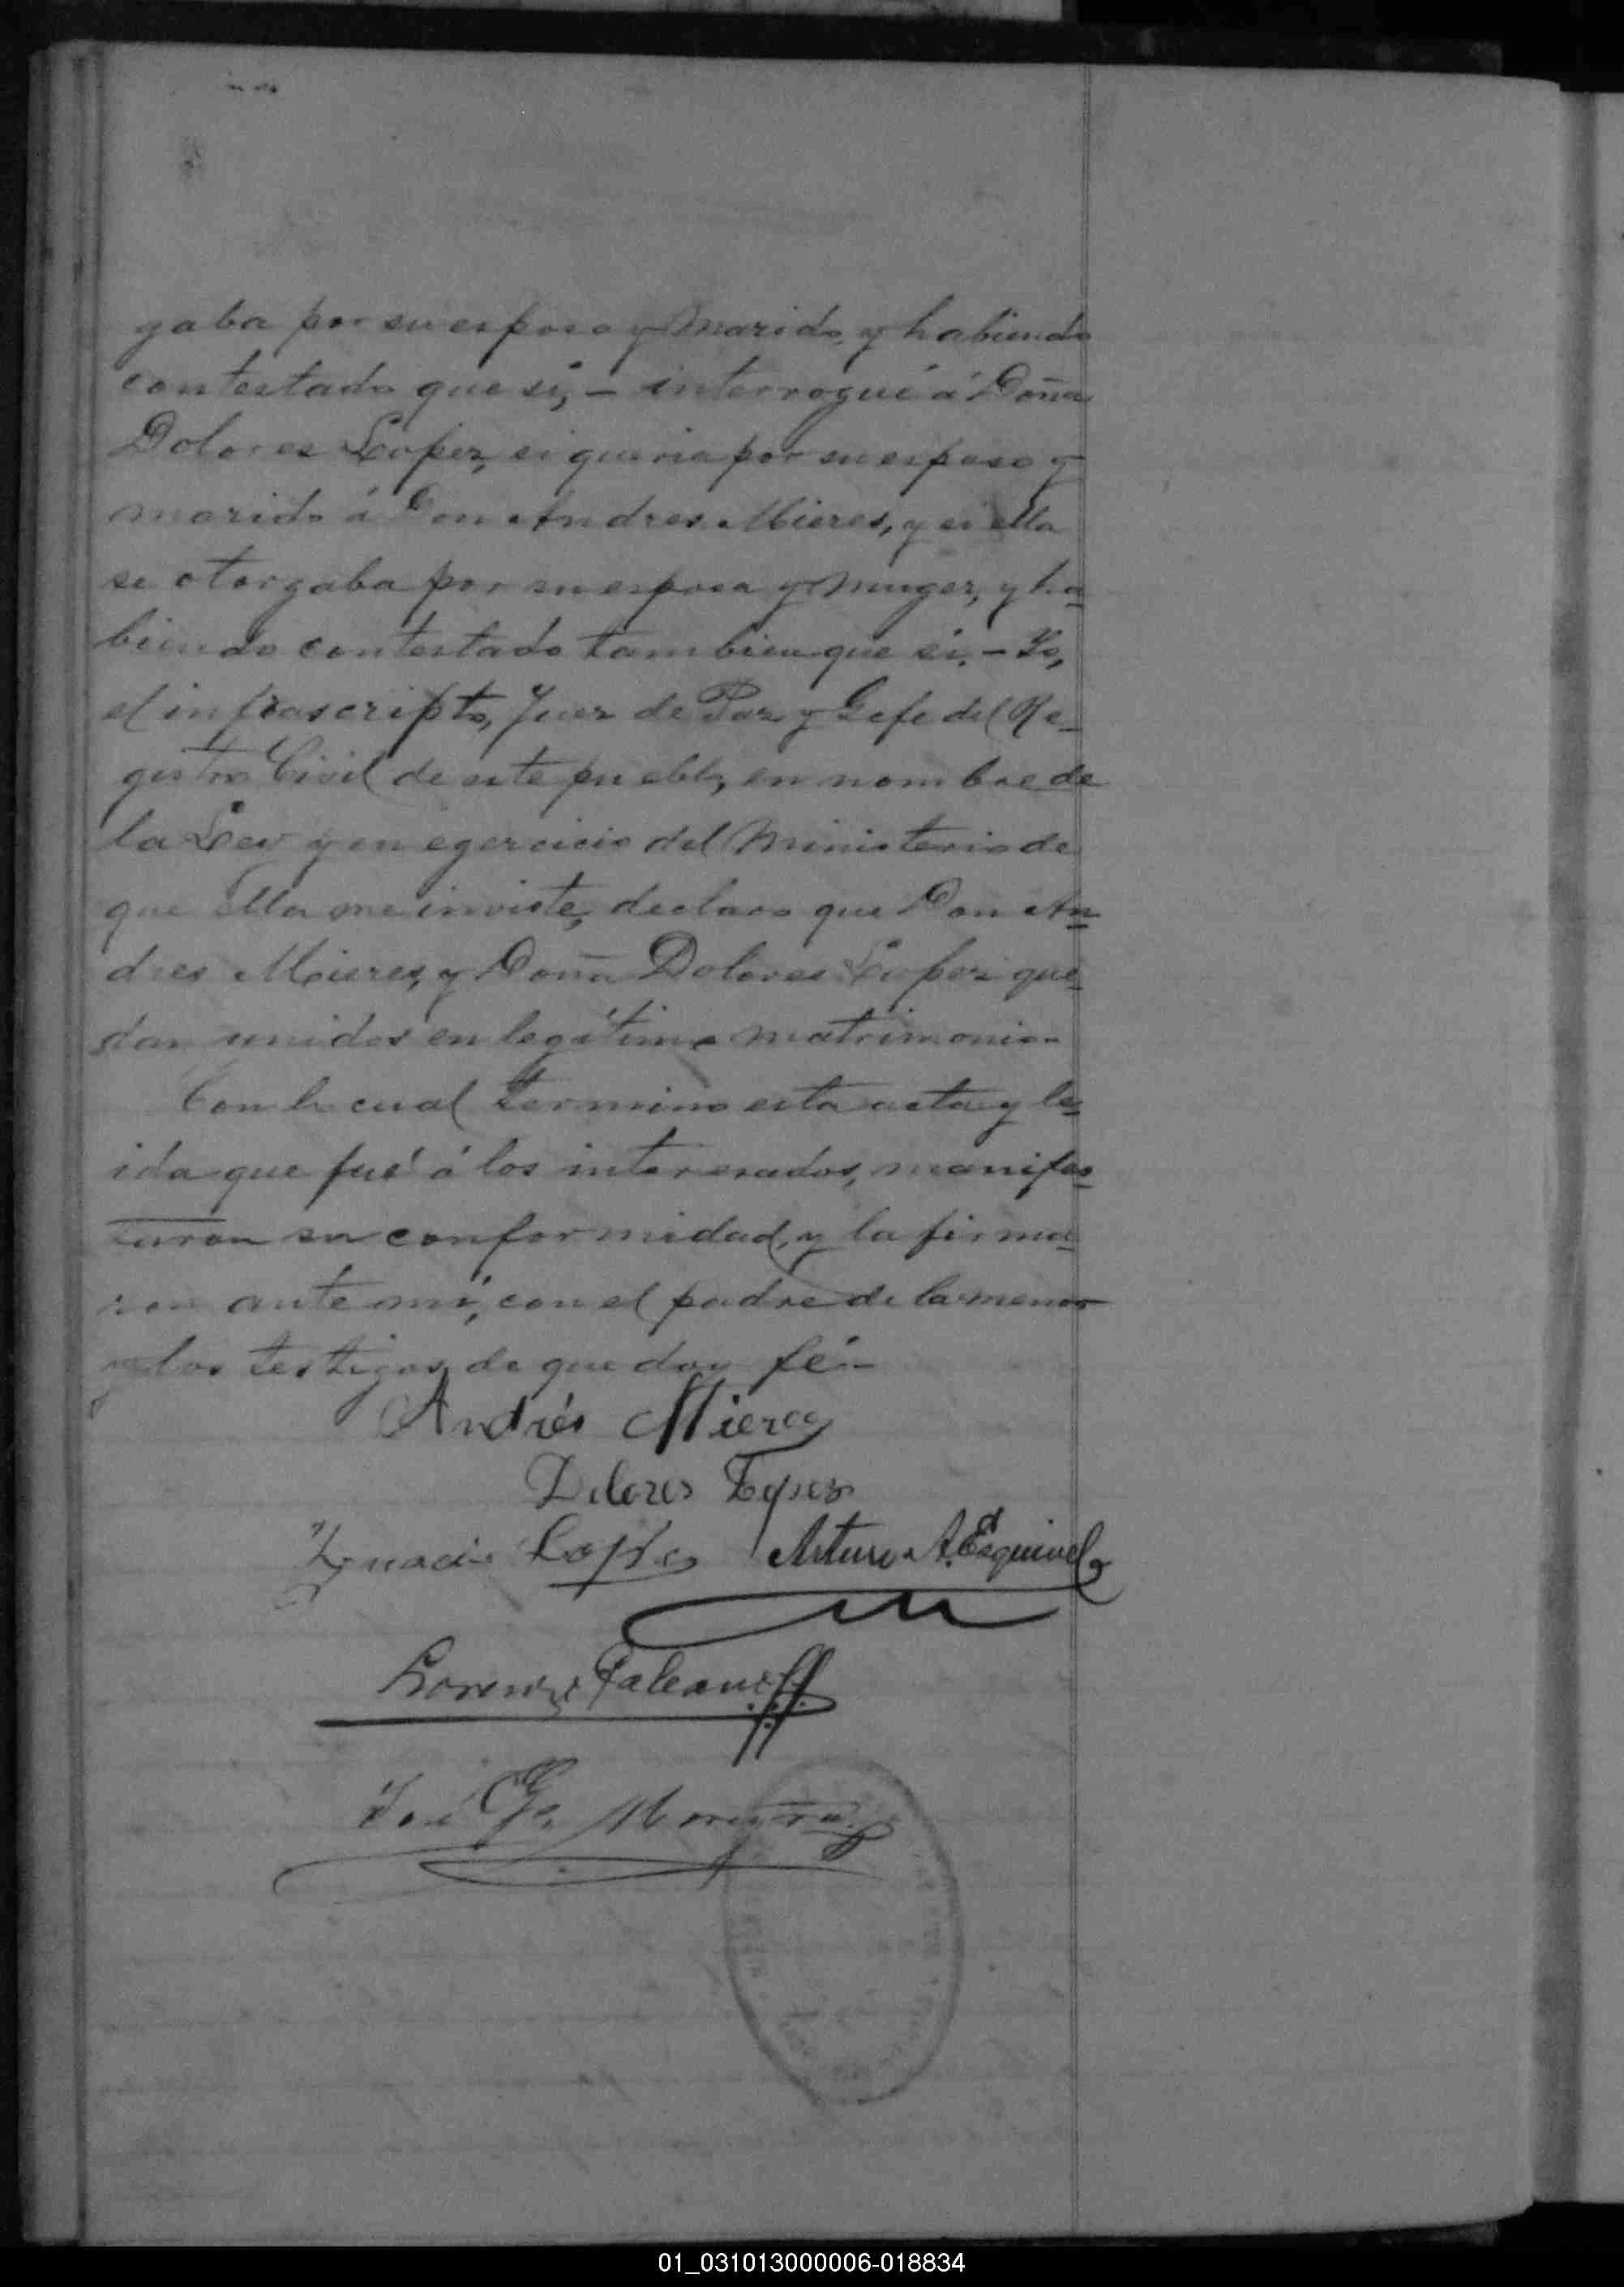 gaba por su esposo y marido, y habiendo
contestado que si, - interrogué á Doña
Dolores Lopez, si queria por su esposo y
marido á Don Andres Mieres, y si ella
se otorgaba por su esposa y muger, y ha
biendo contestado tambien que si. - Yo,
el infrascripto, Juez de Paz y Gefe del Re_
gistro Civil de este pueblo, en nombre de
la Ley y en egercicio del Ministerio de
que ella me inviste, declaro que Don An
dres Mieres, y Doña Dolores Lopez que
dan unidos en legítimo matrimonio-
Con lo cual termino esta acta y le
ida que fué á los interesados, manifes
taron su conformidad, y la firma
ron ante mi, con el padre de la menor
y los testigos de que doy fé.-
Andrés Mieres
Dolores Lopez
Ygnacio Lopez Arturo A. Esquivel
Lorenzo Galeano
José G. Moreyra
01_031013000006-018834